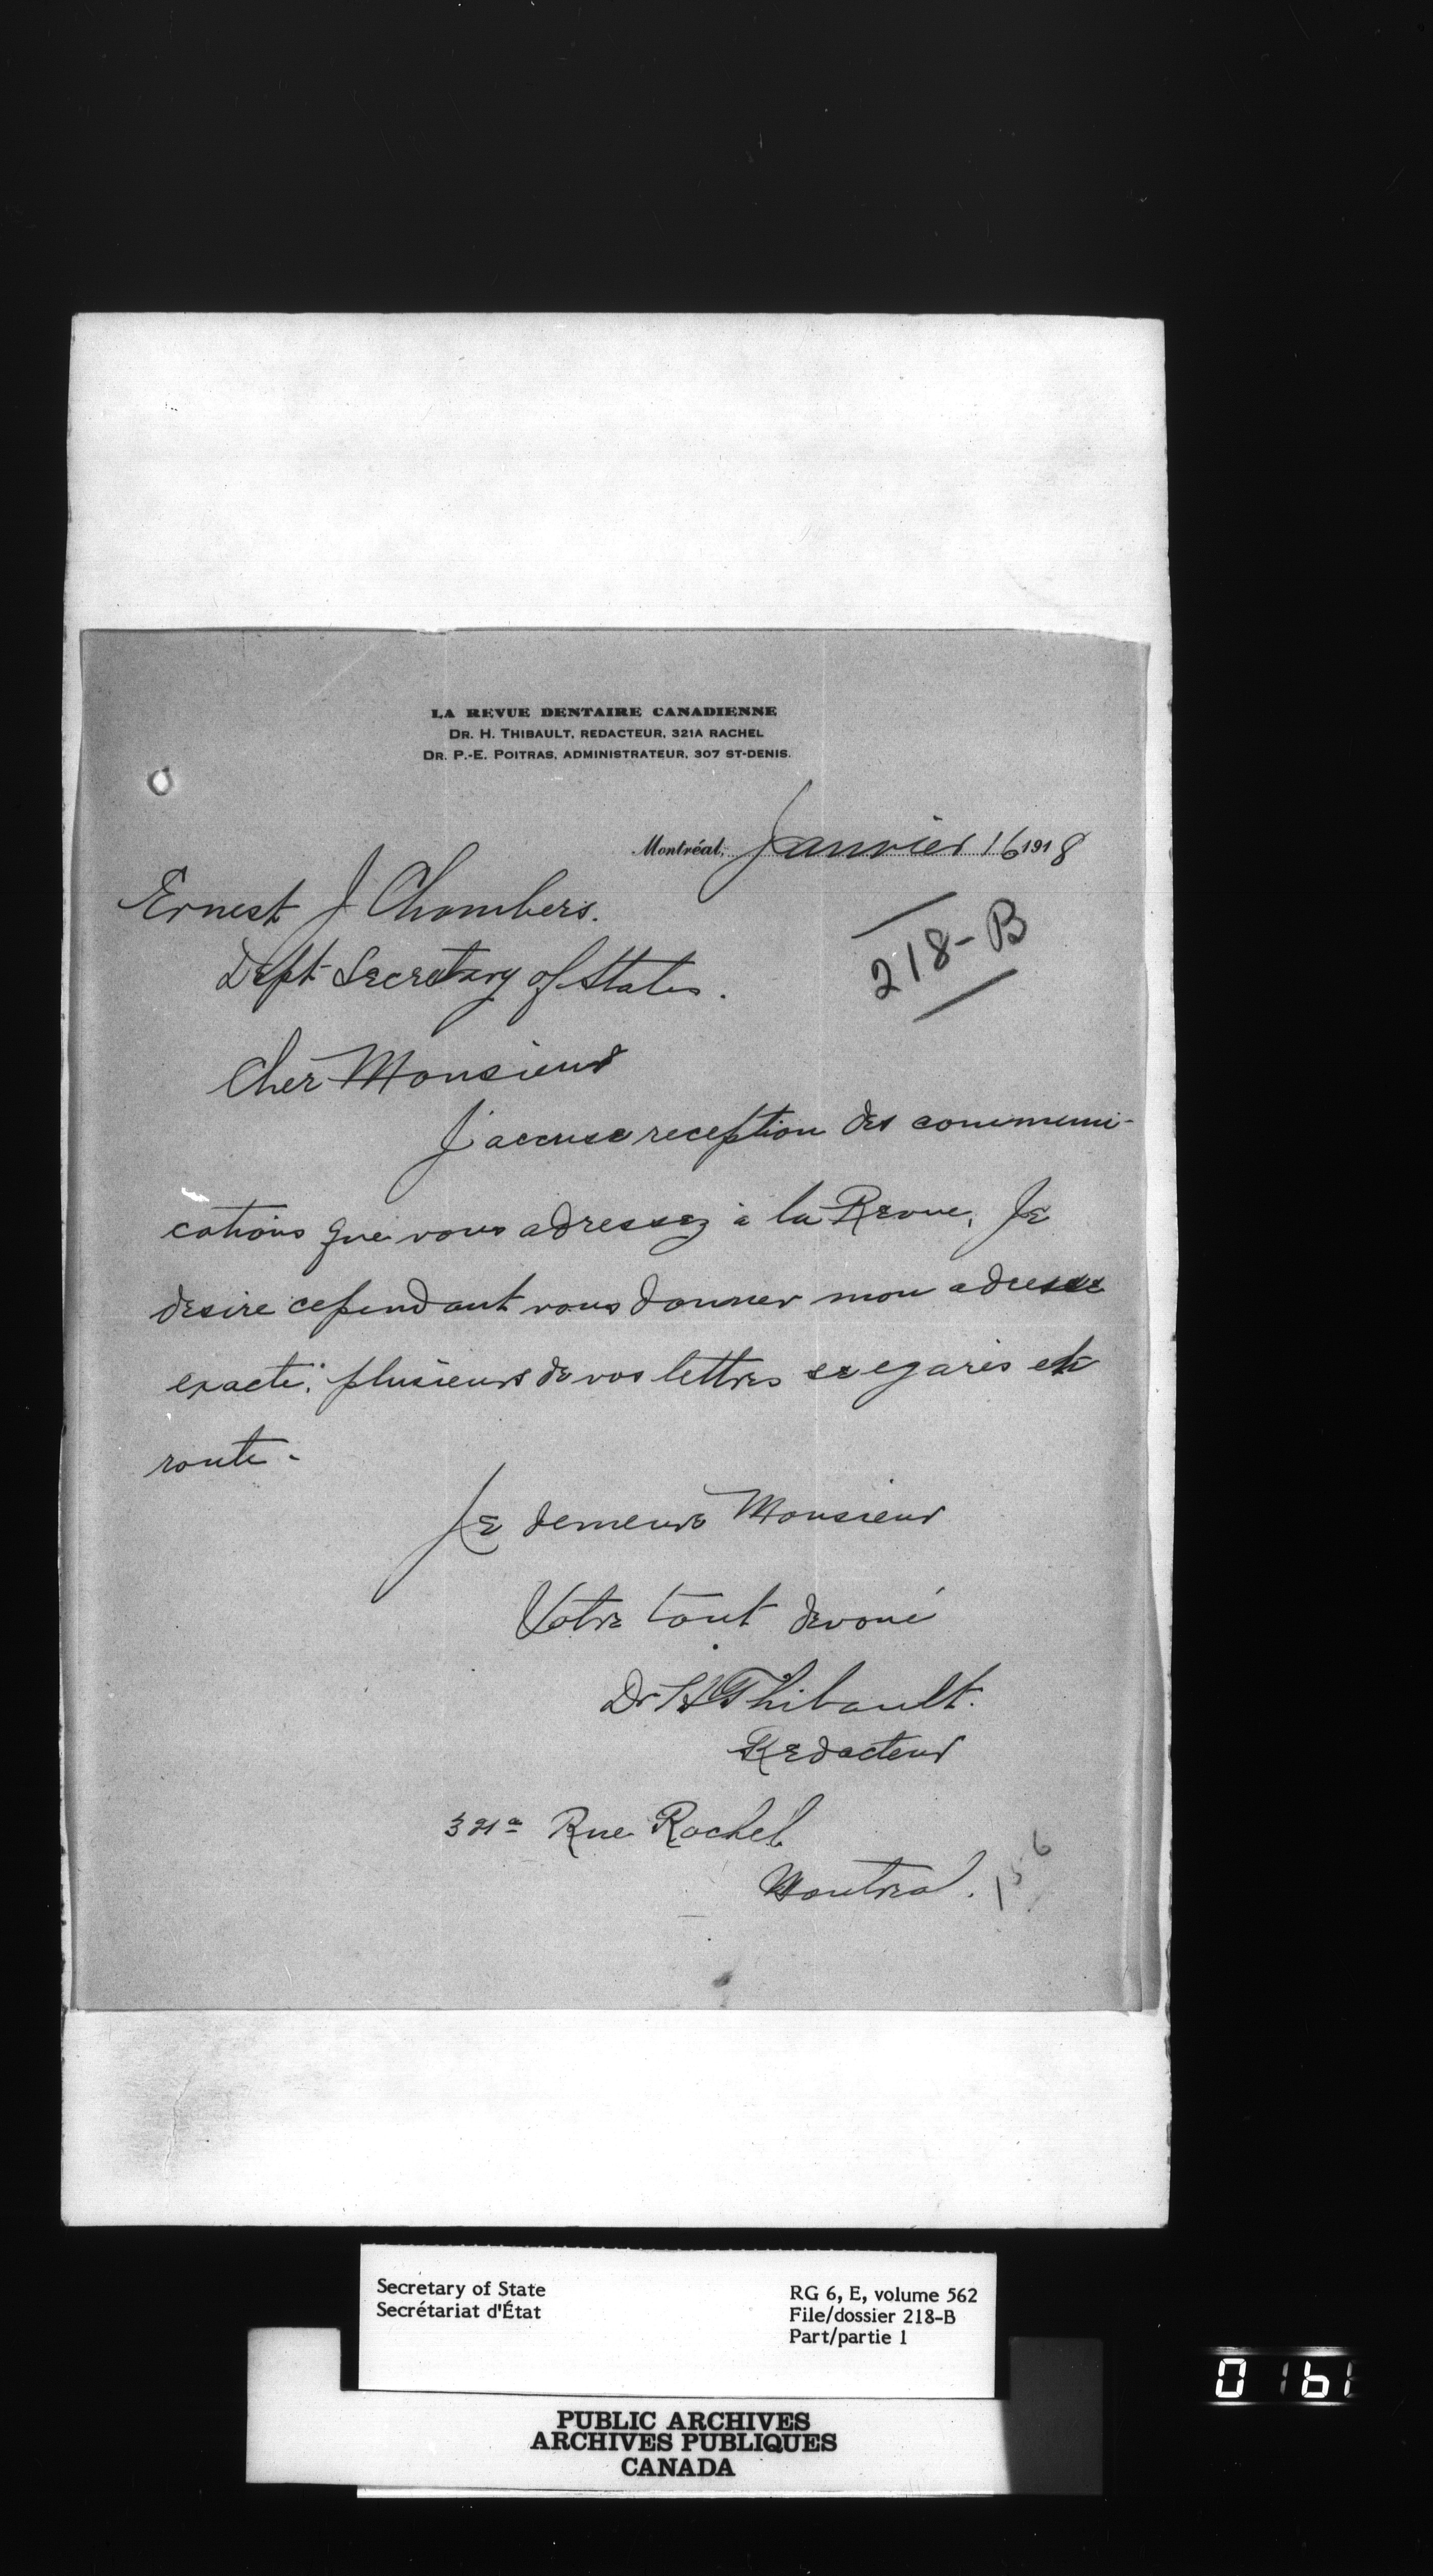 LA REVUE DENTAIRE CANADIENNE
DR. H. THIBAULT, REDACTEUR, 321A RACHEL
DR. P.-E. POITRAS, ADMINISTRATEUR, 307 ST-DENIS.
Montréal, Janvier 16 1918
Ernest J Chambers.
Dept Secretary of States.
218-B
Cher Monsieur
J'accuse reception des communi-
cations que vous adressez à la Revue. Je
desire cependant vous donner mon adresse
exacte; plusieurs de vos lettres se egares
route.
Je demeure Monsieur
Votre tout devoué
Dr H Thibault.
Redacteur
321a Rue Rachel
Montreal.
156
Secretary of State
Secrétariat d'État
RG 6, E, volume 562
File/dossier 218-B
Part/partie 1
PUBLIC ARCHIVES
ARCHIVES PUBLIQUES
CANADA
0161